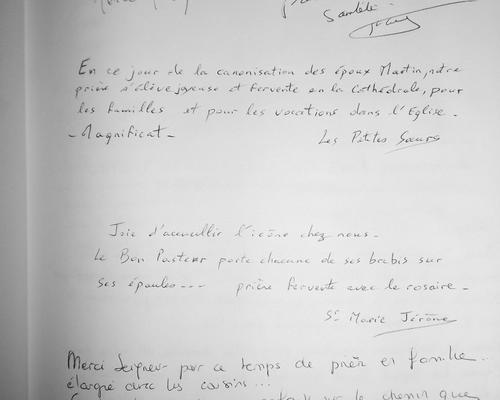 Santé
En ce jour de la canonisation des époux Martin, notre
prière s'élève joyeuse et fervente en la Cathédrale, pour
les familles et pour les vocations dans l'Eglise.
- Magnificat - Les Petites Soeurs
Joie d'accueillir l'icône chez nous.
Le Bon Pasteur porte chacune de ses brebis sur
ses épaules... prière fervente avec le rosaire.
Sr Marie Jérôme
Merci Seigneur par ce temps de prière en famille
élargie avec les cousins...
sur le chemin que